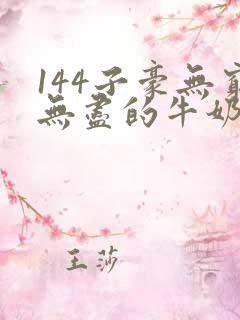 144子豪無窮
無盡的牛奶
王莎